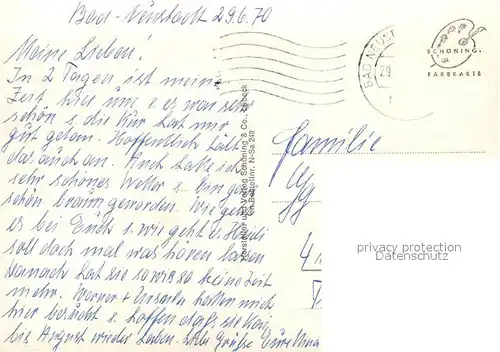 Bad-Neustadt 29.6.70
Meine Lieben!
In 2 Tagen ist meine
Zeit hier um u. es war sehr
schön u. die Kur hat mir
gut getan. Hoffentlich hält
das auch an. Auch hatte ich
sehr schönes Wetter u. bin ganz
schön braun geworden. Wie geht
es bei Euch u. wie geht es Heidi
soll doch mal was hören lassen
Danach hat sie so was keine Zeit
mehr. Werner + haben mich
hier besucht u. hoffen daß sie
bis August wieder haben. Grüße Eure
Familie
BAD NEUST
29.
SCHÖNING.
FARBKARTE
Hersteller und Verlag Schöning & Co., Lübeck
Bestellnr. N-Sa 249
privacy protection
Datenschutz